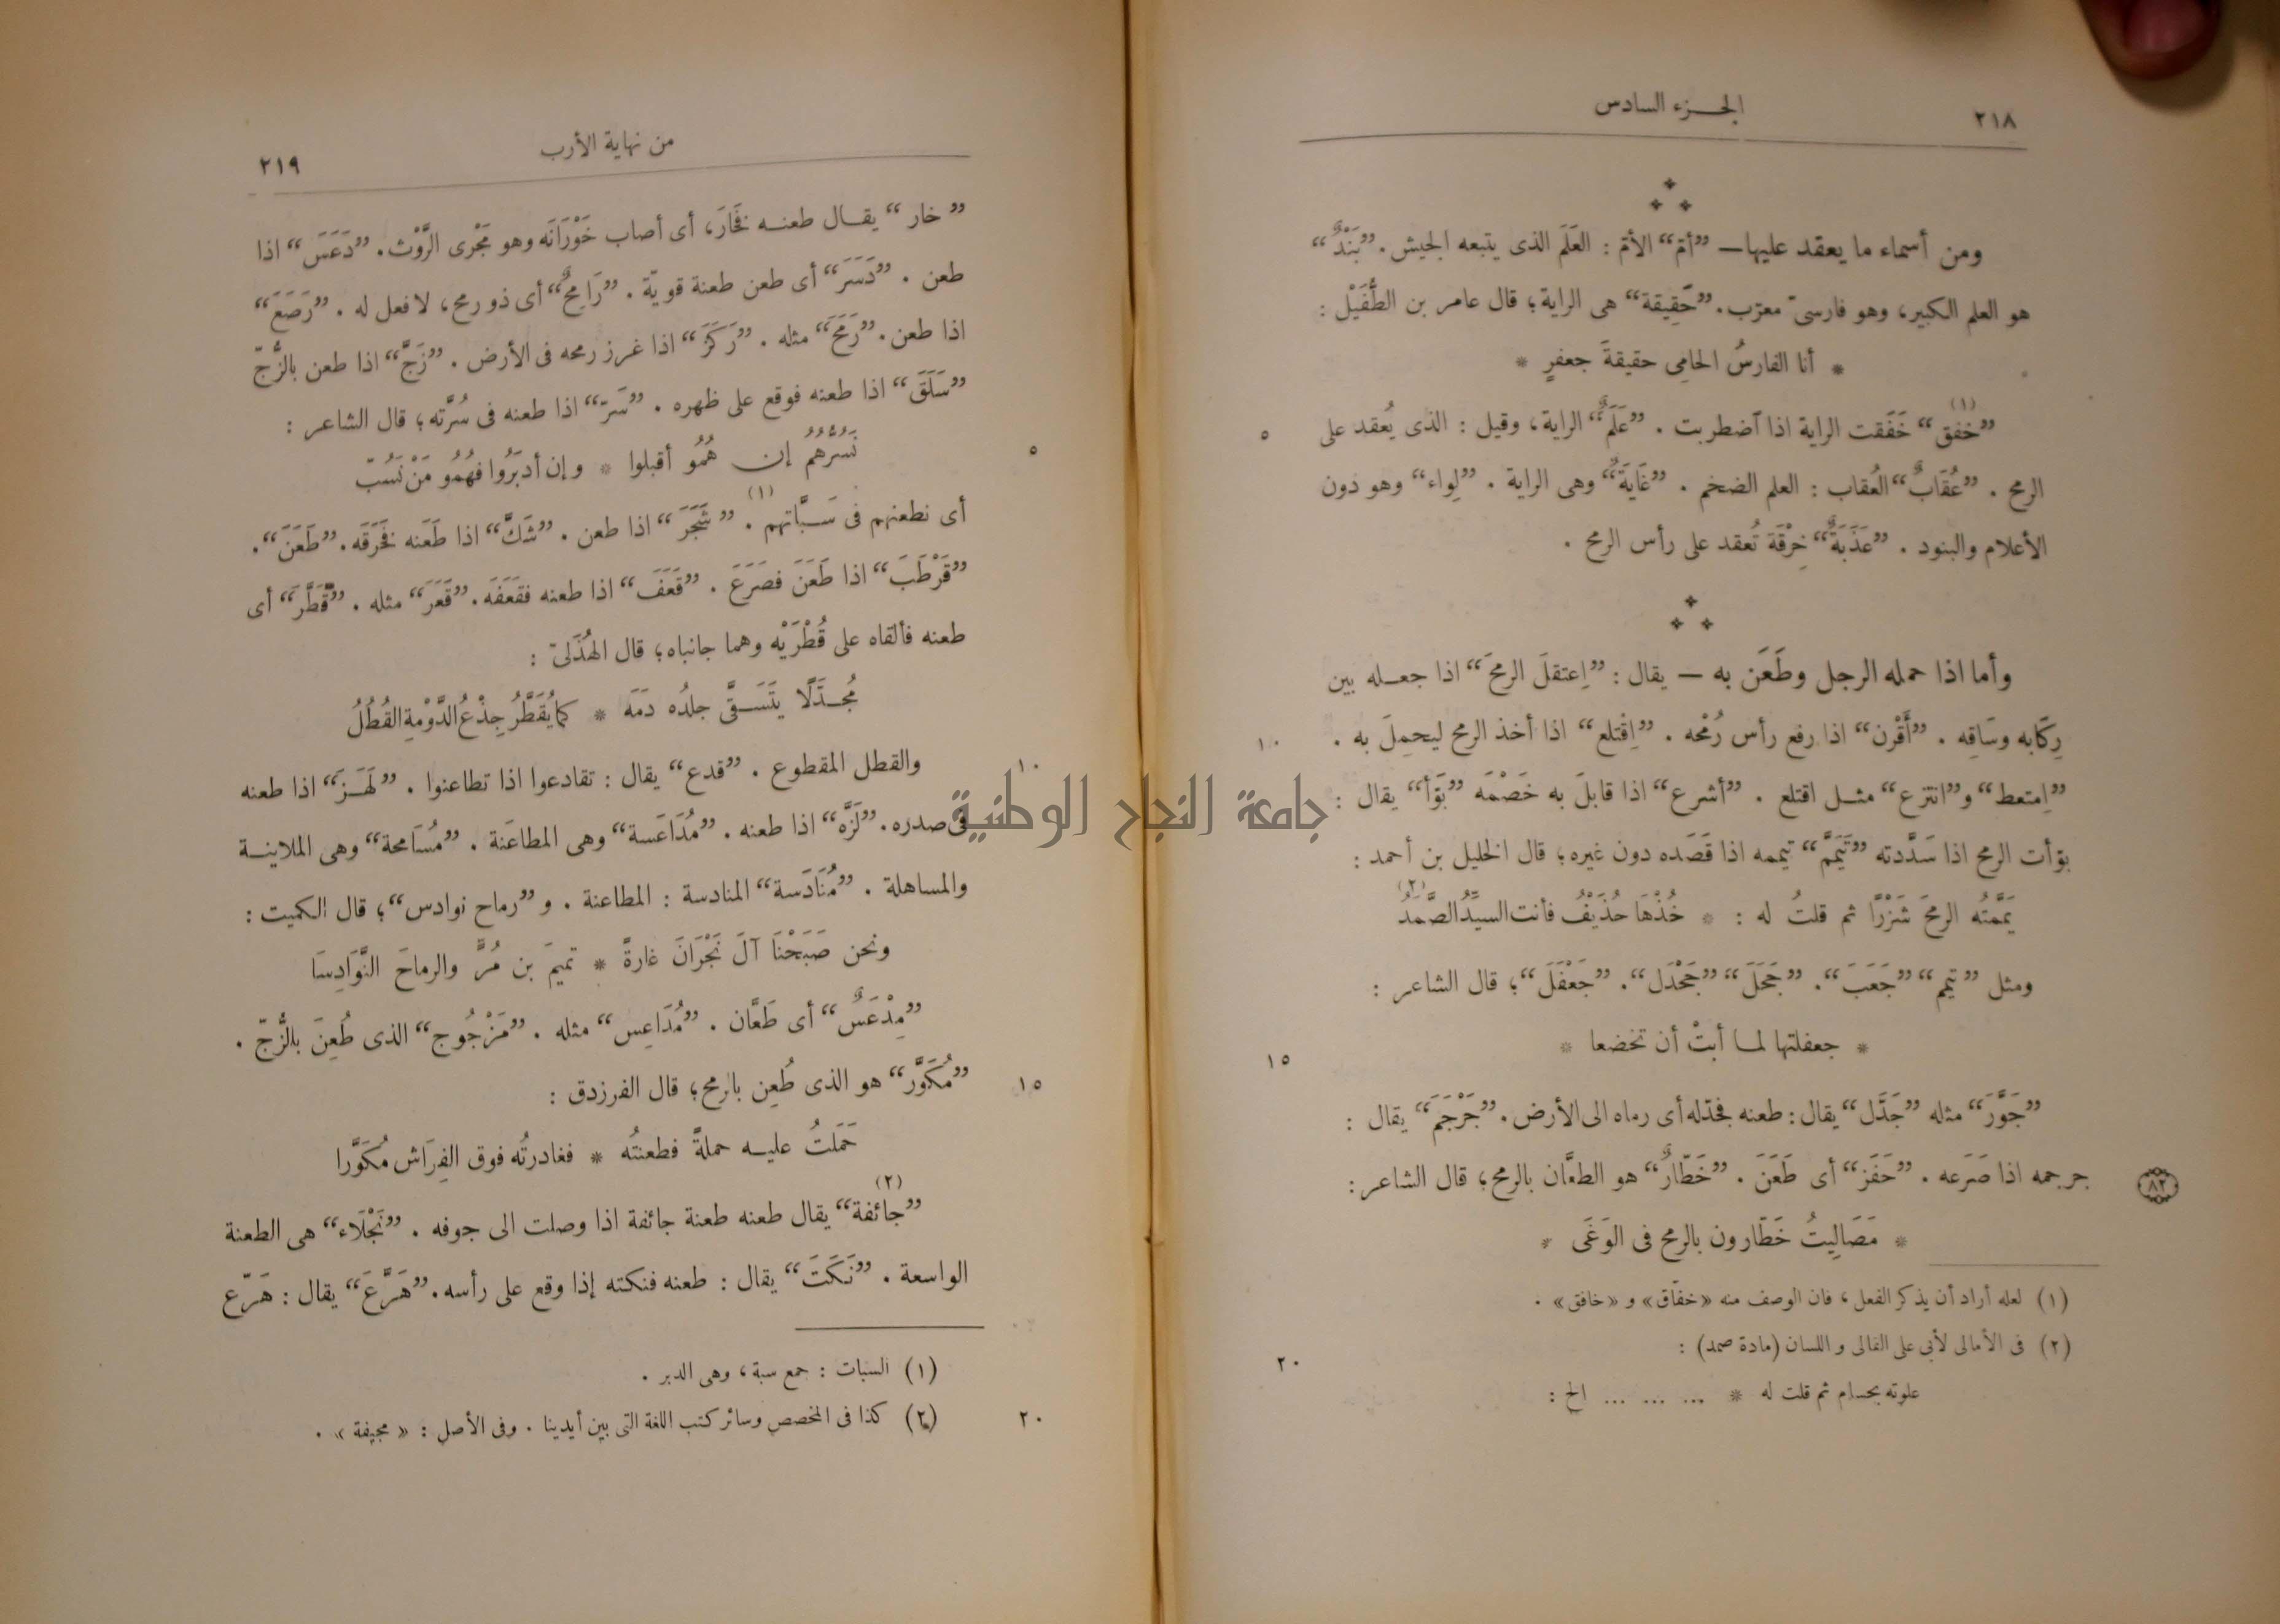 ٢١٨
الجـزء السادس
ومن أسماء ما يعقد عليها — ”أمّ“ الأمّ : العَلَم الذى يتبعه الجيش . ”بَنْدٌ“
هو العلم الكبير، وهو فارسىّ معرّب . ”حَقِيقة“ هى الراية؛ قال عامر بن الطُّفَيْل :
* أنا الفارسُ الحامِى حقيقةَ جعفرٍ *
”خفق“ (١) خَفَقت الراية اذا آضطربت . ”عَلَمٌ“ الراية، وقيل : الذى يُعقد على
٥
الرمح . ”عُقَابٌ“ العُقاب : العلم الضخم . ”غَايَةٌ“ وهى الراية . ”لِواء“ وهو دون
الأعلام والبنود . ”عَذَبَةٌ“ خِرْقَة تُعقد على رأس الرمح .
وأما اذا حمله الرجل وطَعَن به — يقال : ”اِعتقلَ الرمحَ“ اذا جعـله بين
رِكَابه وسَاقِه . ”أَقْرن“ اذا رفع رأس رُمْحه . ”اِقْتلع“ اذا أخذ الرمح ليحمِلَ به .
١٠
”اِمتعط“ و”انتزع“ مثـل اقتلع . ”أشرع“ اذا قابلَ به خَصْمَه ”بَوّأ“ يقال :
بوّأت الرمح اذا سَدَّدته ”تَيَمَّ“ تيممه اذا قَصَده دون غيره؛ قال الخليل بن أحمد :
يَمَّمتُه الرمحَ شَزْرًا ثم قلتُ له : * خُذْهَا حُذَيْفُ فأنت السيِّدُ الصَّمَدُ (٢)
ومثل ”تيمم“ ”جَعَبَ“ . ”جَحَلَ“ ”جَحْدَل“ . ”جَعْفَلَ“؛ قال الشاعر :
* جعفلتها لمـا أبتْ أن تخضعا *
١٥
”جَوَّرَ“ مثله ”جَدَّل“ يقال : طعنه فجدّله أى رماه الى الأرض . ”جَرْجَمَ“ يقال :
جرجمه اذا صَرَعه . ”حَفَز“ أى طَعَنَ . ”خَطّارٌ“ هو الطعَّان بالرمح؛ قال الشاعر :
٨٢
* مَصَالِيتُ خَطّارون بالرمح فى الوَغَى *
(١) لعله أراد أن يذكر الفعل، فان الوصف منه «خفّاق» و «خافق» .
(٢) فى الأمالى لأبى على القالى و اللسان (مادة صمد) :
٢٠
علوته بحسام ثم قلت له * ... ... ... الخ :
جامعة النجاح الوطنية
من نهاية الأرب
٢١٩
”خار“ يقـال طعنـه فَخَارَ، أى أصاب خَوْرَانَه وهو مَجْرى الرَّوْث . ”دَعَسَ“ اذا
طعن . ”دَسَرَ“ أى طعن طعنة قويّة . ”رَامِحٌ“ أى ذو رمح، لا فعل له . ”رَصَعَ“
اذا طعن . ”رَمَحَ“ مثله . ”رَكَزَ“ اذا غرز رمحه فى الأرض . ”زَجَّ“ اذا طعن بالزُّجّ
”سَلَقَ“ اذا طعنه فوقع على ظهره . ”سَرّ“ اذا طعنه فى سُرَّته؛ قال الشاعر :
نَسُرُّهُمُ إن هُمُو أقبلوا * وإن أدبَرُوا فهُمُو مَنْ نَسُبّ
٥
أى نطعنهم فى سَـبَّاتهم (١) . ”شَجَرَ“ اذا طعن . ”شَكَّ“ اذا طَعَنه فَخَرَقَه . ”طَعَنَ“ .
”قَرْطَبَ“ اذا طَعَنَ فصَرَعَ . ”قَعَفَ“ اذا طعنه فقَعَفَه . ”قَعَرَ“ مثله . ”قَطَّرَ“ أى
طعنه فألقاه على قُطْرَيْه وهما جانباه؛ قال الهُذَلىّ :
مُجـدَّلًا يَتَسَـقَّى جلدُه دمَه * كما يُقَطَّرُ جِذْعُ الدَّوْمةِ القُطُلُ
والقطل المقطوع . ”قدع“ يقال : تقادعوا اذا تطاعنوا . ”لَهَـزَ“ اذا طعنه
١٠
فى صدره . ”لَزَّه“ اذا طعنه . ”مُدَاعَسة“ وهى المطاعَنة . ”مُسَامحة“ وهى الملاينـة
والمساهلة . ”مُنَادَسة“ المنادسة : المطاعنة . و ”رماح نوادس“؛ قال الكميت :
ونحن صَبَحْنَا آلَ نَجْرَانَ غارةً * تميمَ بن مُرٍّ والرماحَ النَّوَادِسَا
”مِدْعَسٌ“ أى طَعَّان . ”مُدَاعِس“ مثله . ”مَزْجُوج“ الذى طُعِنَ بالزُّجّ .
”مُكَوَّر“ هو الذى طُعِن بالرمح؛ قال الفرزدق :
١٥
حَمَلتُ عليـه حملةً فطعنتُه * فغادرتُه فوق الفِرَاش مُكَوَّرا
”جائفة“ (٢) يقال طعنه طعنة جائفة اذا وصلت الى جوفه . ”نَجْلَاء“ هى الطعنة
الواسعة . ”نَكَتَ“ يقال : طعنه فنكته إذا وقع على رأسه . ”هَرَّعَ“ يقال : هَرّع
(١) السبات : جمع سبة، وهى الدبر .
(٢) كذا فى المخصص وسائر كتب اللغة التى بين أيدينا . وفى الأصل : « مجيفة » .
٢٠